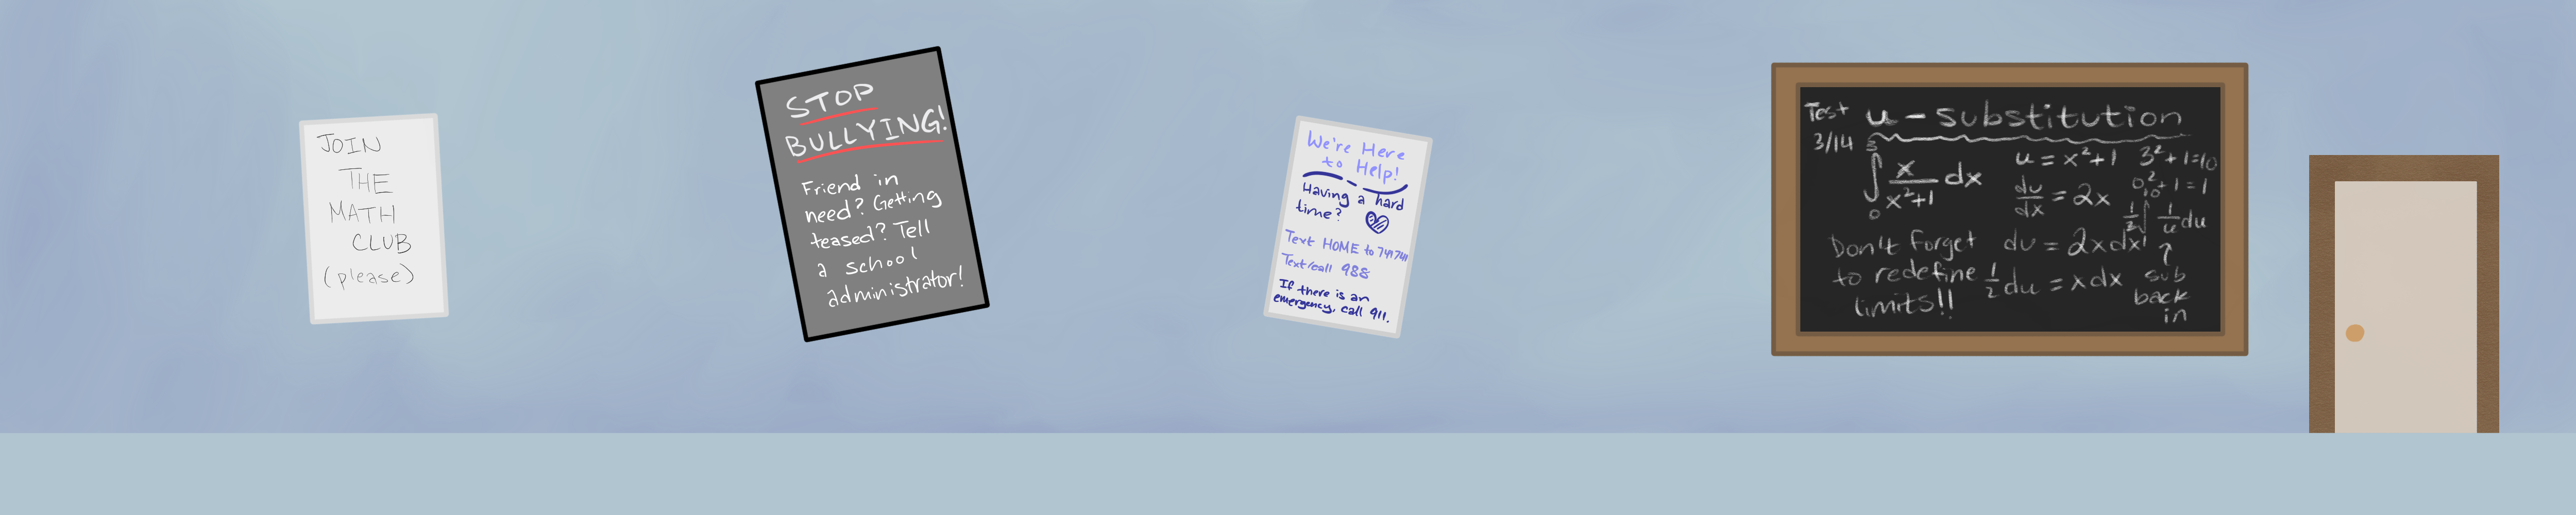 JOIN
THE
MATH
CLUB
(please)
STOP
BULLYING!
Friend in
need? Getting
teased? Tell
a school
administrator!
We're Here
to Help!
Having a hard
time?
Text HOME to 741741
Text/call 988
If there is an
emergency, call 911.
Test
3/14
u-substitution
∫₀³ x/(x²+1) dx
u = x²+1
du/dx = 2x
du = 2xdx
1/2 du = xdx
3²+1=10
0²+1=1
1/2 ∫₁¹⁰ 1/u du
↑
sub
back
in
Don't forget
to redefine
limits!!